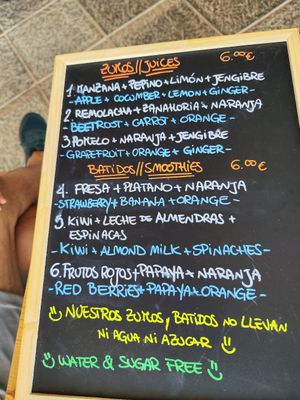 ZUMOS//JUICES 6.00€
1. MANZANA + PEPINO + LIMÓN + JENGIBRE
- APPLE + COCUMBER + LEMON + GINGER -
2. REMOLACHA + ZANAHORIA + NARANJA
- BEETROST + CARROT + ORANGE -
3. POMELO + NARANJA + JENGIBRE
- GRAFEFRUIT + ORANGE + GINGER -
BATIDOS//SMOOTHIES 6.00€
4. FRESA + PLATANO + NARANJA
- STRAWBERRY + BANANA + ORANGE -
5. KIWI + LECHE DE ALMENDRAS +
ESPINACAS
- KIWI + ALMOND MILK + SPINACHES -
6. FRUTOS ROJOS + PAPAYA + NARANJA
- RED BERRIES + PAPAYA + ORANGE -
NUESTROS ZUMOS, Y BATIDOS NO LLEVAN
NI AGUA NI AZUCAR
WATER & SUGAR FREE